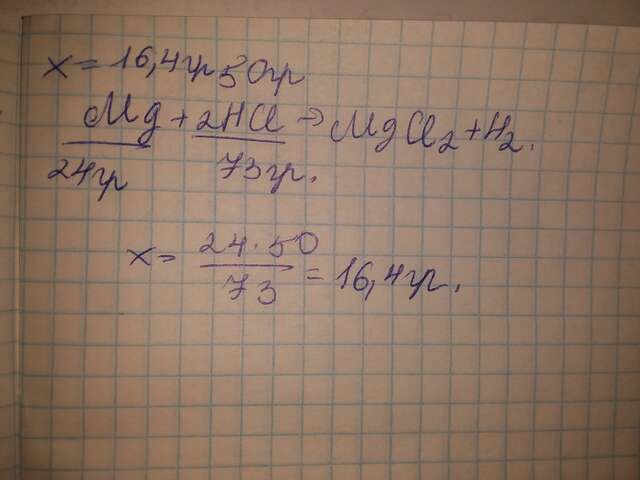 x = 16,4гр 50гр
Mg + 2HCl → MgCl₂ + H₂.
24гр 73гр.
x = 24 · 50 / 73 = 16,4гр.